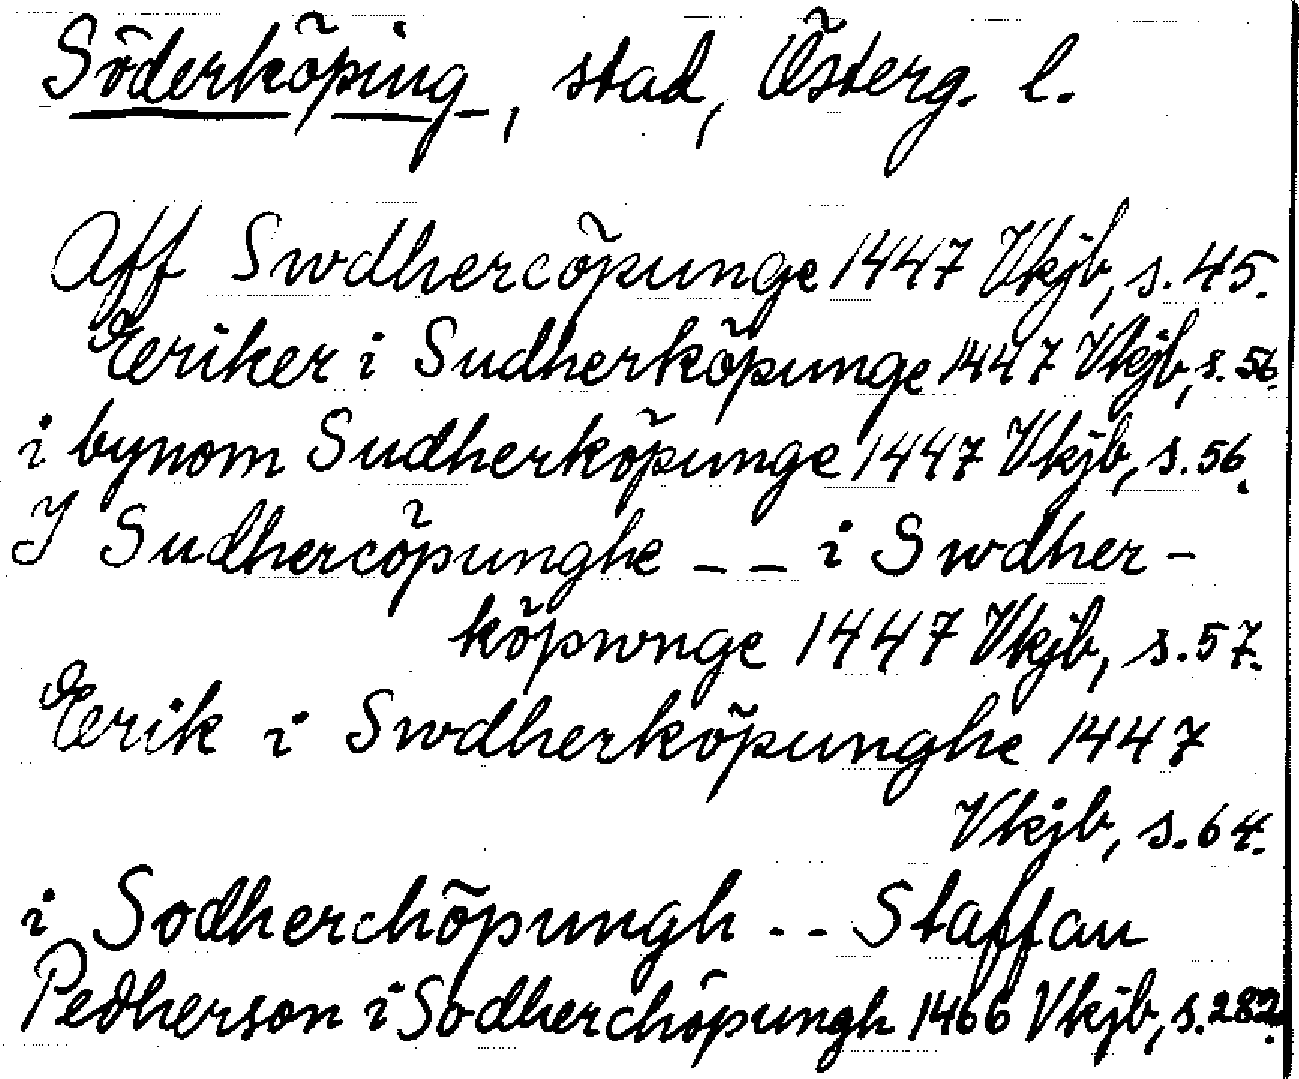 Söderköping, stad, Österg. l.
Aff Swdhercöpunge 1447 Vkjb, s. 45.
Eeriker i Sudherköpunge 1447 Vkjb, s. 56.
i bynom Sudherköpunge 1447 Vkjb, s. 56.
J Sudhercöpunghe _ _ i Swdher-
köpwnge 1447 Vkjb, s. 57.
Eerik i Swdherköpunghe 1447
Vkjb, s. 64.
i Sodherchöpungh -- Staffan
Pedherson i Sodherchöpungh 1466 Vkjb, s. 282.